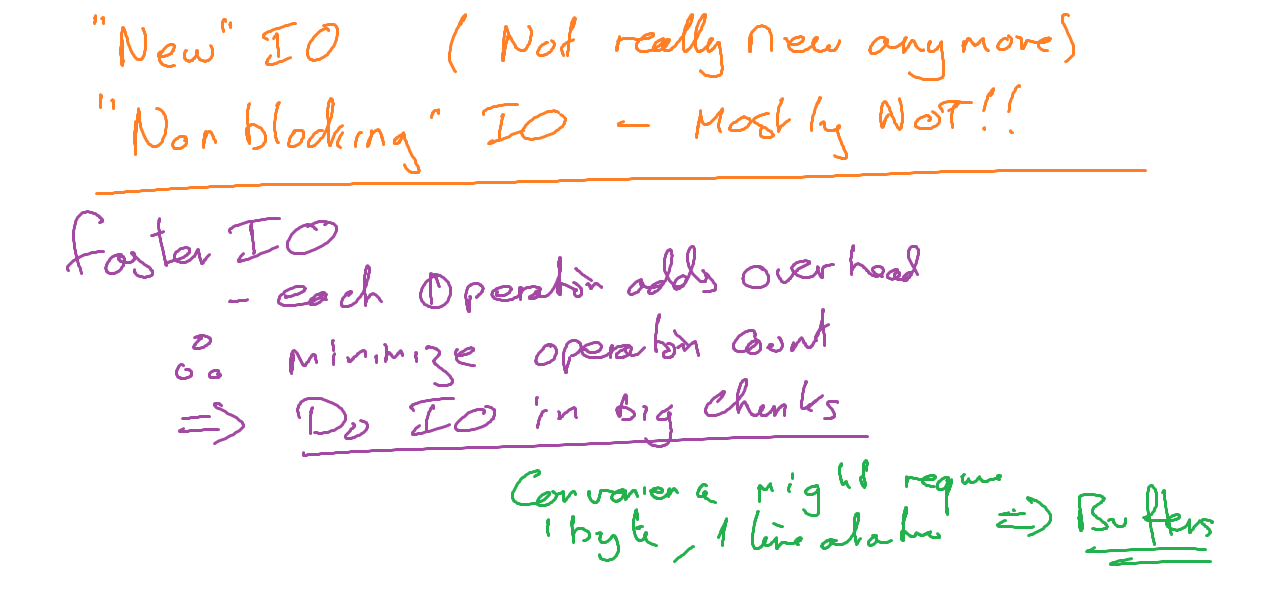 "New" IO ( Not really new anymore)
"Non blocking" IO - Mostly NOT!!
faster IO
- each Operation adds overhead
∴ minimize operation count
⇒ Do IO in big chunks
Convenience might require
1 byte, 1 line at a time ⇒ Buffers